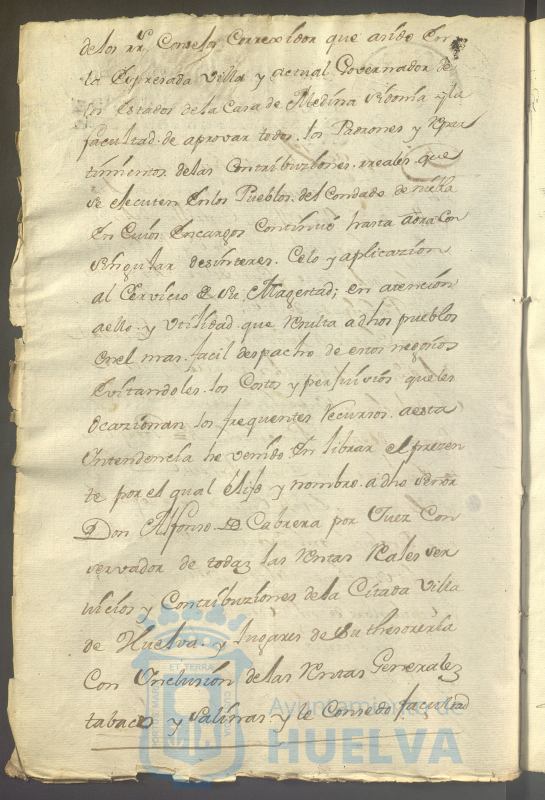 delos rrs. Consejos, Correxidor que asido en
la Expresada Villa y actual Governador de
los Estados dela Casa de Medina Sidonia y la
facultad de aprovar todos los Padrones y Repar
timientos delas Contribuziones rreales que
se executen enlos Pueblos del Condado de niebla
en cuios Encargos Continuò hasta aôra con
singular desinteres, Celo y aplicazion
al Servicio de Su Magestad; en atencion
aello y utilidad que Resulta adhos pueblos
enel mas facil despacho de estos negosios
Evitandoles los Costos y perjuicios queles
ocazionan los frequentes Recursos aesta
Intendencia he venido en librar el prezen
te por el qual elijo y nombro adho señor
Don Alfonso D Cabrera por Juez Con
servador de todaz las Rentas Reales ser
vicios y Contribuziones dela Citada Villa
de Huelva y lugares de Su thesoreria
Con Inclusion delas Rentas Generalez
tabaco y Salinas y le Consedo facultad
PORTUS MARIS
ET TERRÆ
CUSTODIA
Ayuntamiento de
HUELVA